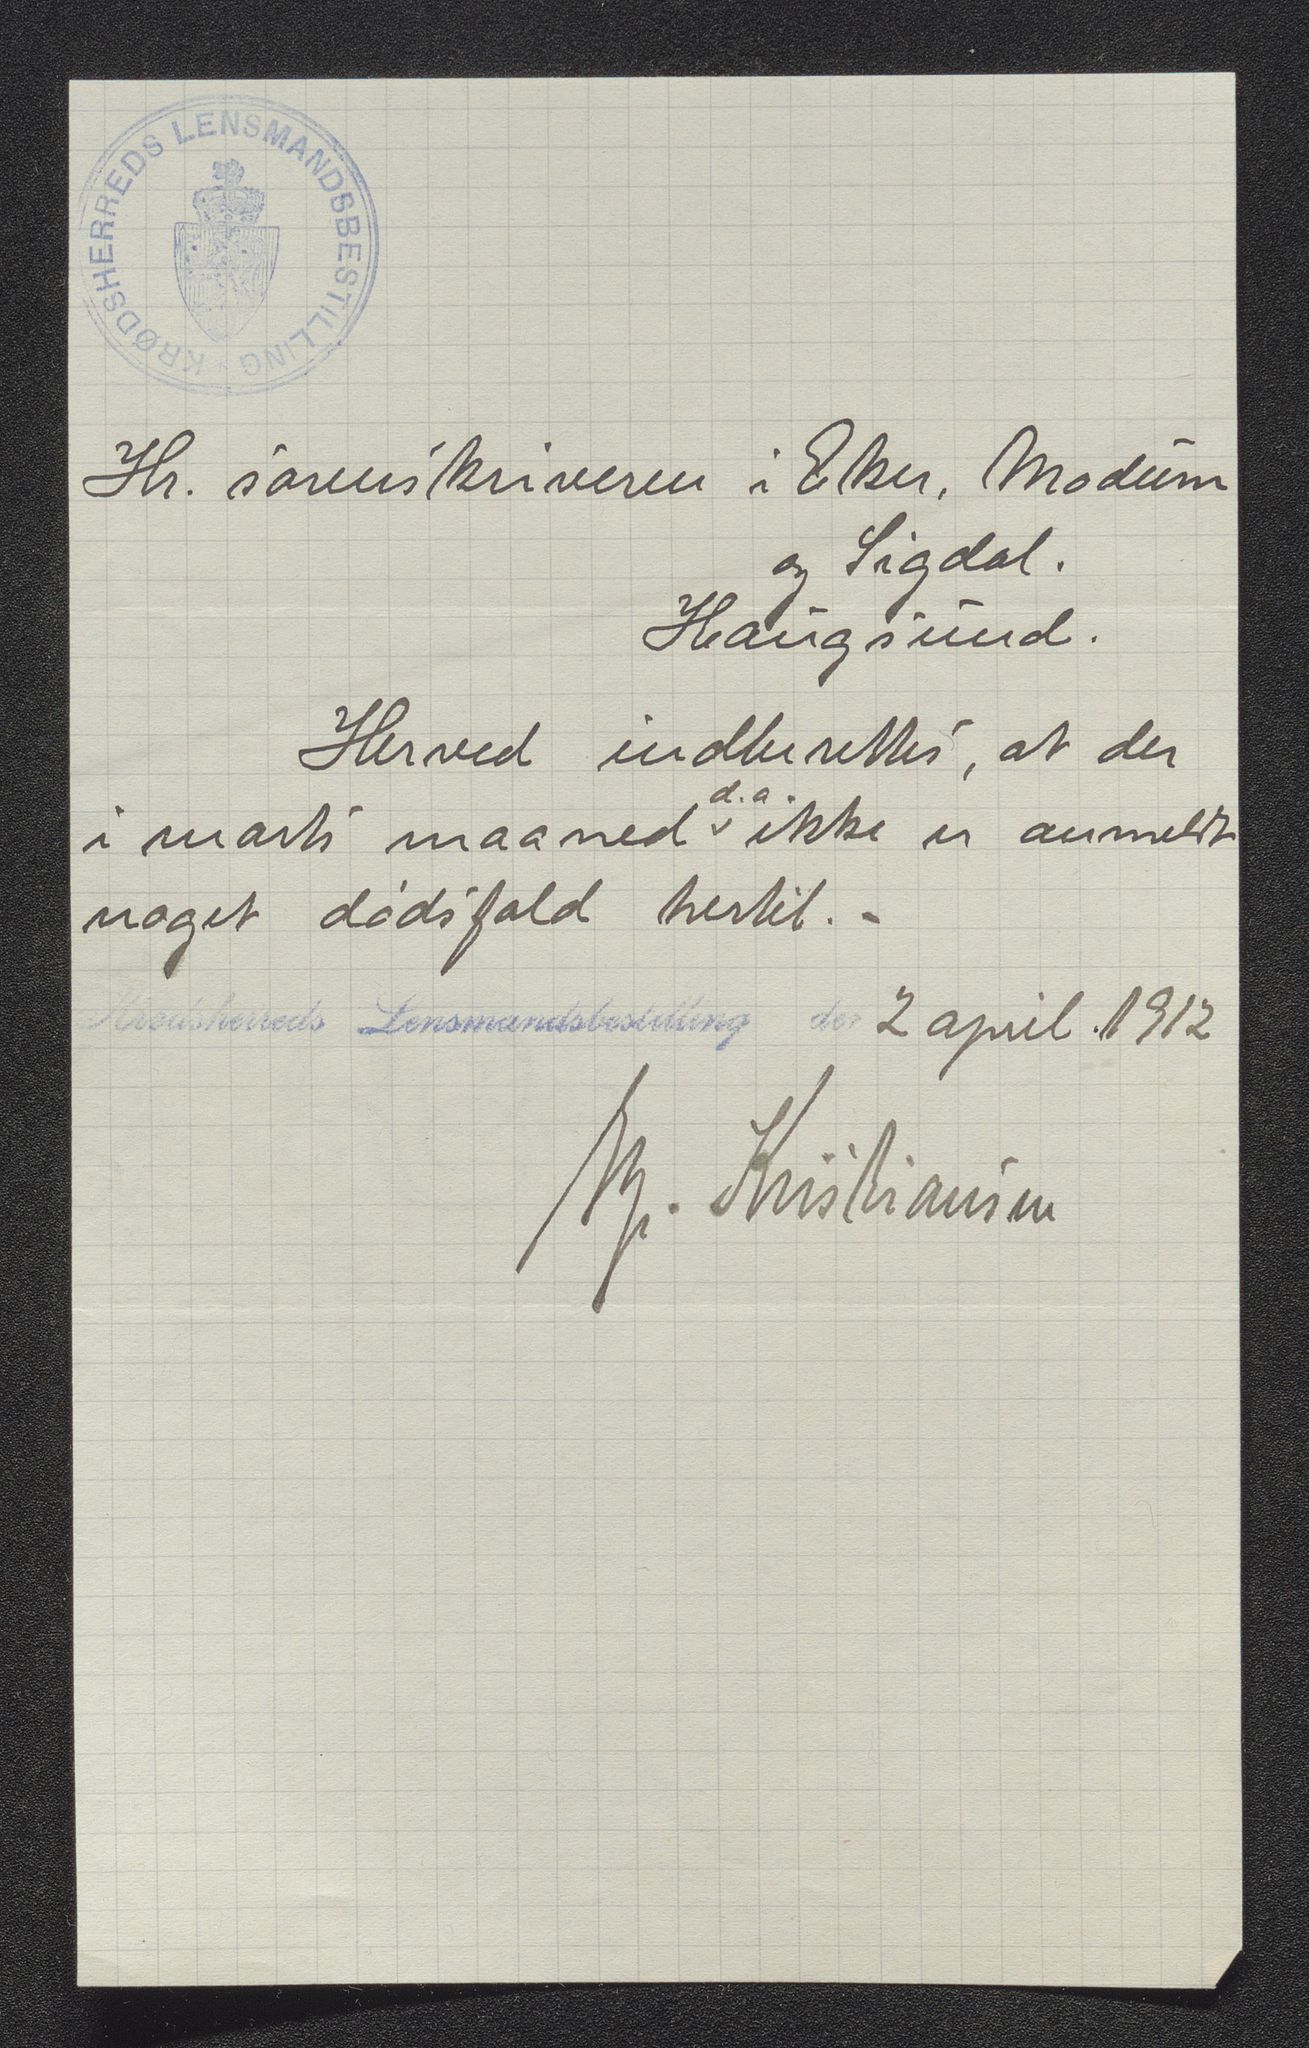 KRØDSHERREDS LENSMANDSBESTILLING
Hr. sorenskriveren i Eker, Modum
og Sigdal.
Haugsund.
Herved indberettes, at der
i marts maaned d.a. ikke er anmeldt
noget dødsfald hertil. -
Krødsherreds Lensmandsbestilling den 2 april 1912
Kristiansen